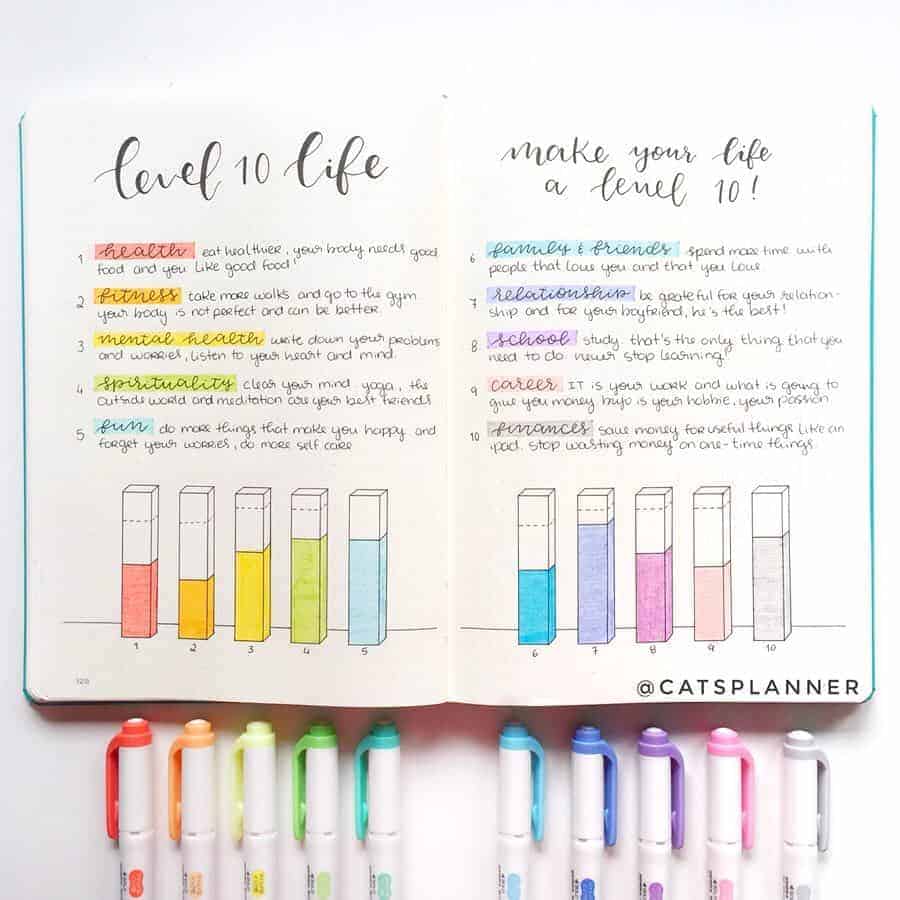 level 10 life
1 health eat healthier, your body needs good
food and you like good food!
2 fitness take more walks and go to the gym
your body is not perfect and can be better.
3 mental health write down your problems
and worries, listen to your heart and mind.
4 spirituality clear your mind. yoga, the
outside world and meditation are your best friends
5 fun do more things that make you happy and
forget your worries, do more self care
1 2 3 4 5
120
make your life
a level 10!
6 family & friends spend more time with
people that love you and that you love
7 relationship be grateful for your relation-
ship and for your boyfriend, he's the best!
8 school study. that's the only thing that you
need to do. never stop learning!
9 career IT is your work and what is going to
give you money. bujo is your hobbie, your passion
10 finances save money for useful things like an
ipad. stop wasting money on one-time things.
6 7 8 9 10
@CATSPLANNER